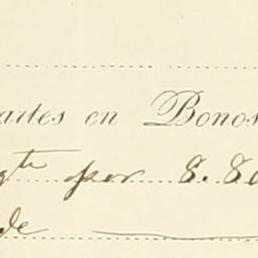 artes en Bonos
gte por 8.80
de